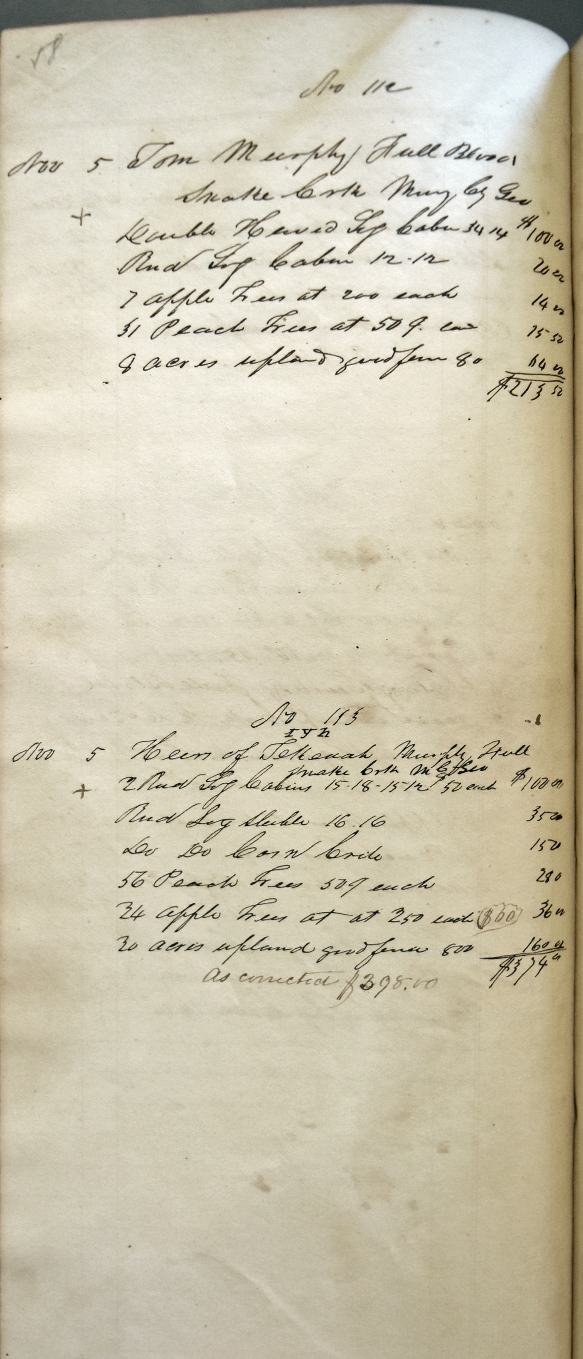 58
No 112
Nov 5 Tom Murphy Full Blood
Snake Crk Mury Cy Geo
+
Double Hewed Log Cabin 34 14 $100 00
Rnd Log Cabin 12-12 20 00
7 apple Trees at 200 each 14 00
31 Peach Trees at 50¢ ea 15 50
8 acres upland good fence 80 64 00
$213 50
No 113
Nov 5 Heirs of Tekenah Murphy Full
Snake Crk M C Geo
+ 2 Rnd Log Cabins 15-18-15-12 50 each $100 00
Rnd Log Stable 16.16 35 00
Do Do Corn Crib 15 0
56 Peach Trees 50¢ each 28 0
24 apple Trees at at 250 each 36 00
20 acres upland good fence 800 160 00
$374 00
As corrected $398.00